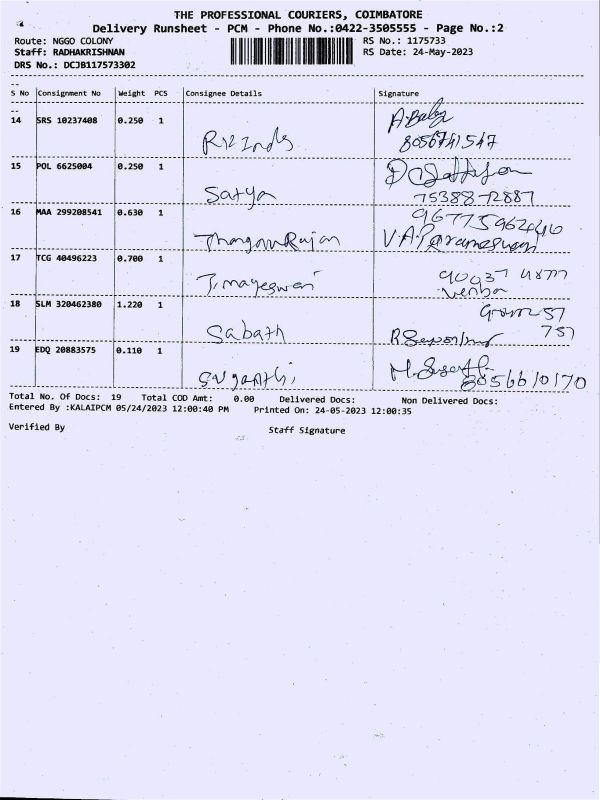 THE PROFESSIONAL COURIERS, COIMBATORE
Delivery Runsheet - PCM - Phone No.:0422-3505555 - Page No.:2
Route: NGGO COLONY
RS No.: 1175733
Staff: RADHAKRISHNAN
RS Date: 24-May-2023
DRS No.: DCJB117573302
S No Consignment No Weight PCS Consignee Details Signature
14 SRS 10237408 0.250 1
A.Baby
8056741547
15 POL 6625004 0.250 1
Satya
75388-72887
16 MAA 299208541 0.630 1
ThangamRajan
V.A.Parameswari
17 TCG 40496223 0.700 1
T.mayeswari
Venba
18 SLM 320462380 1.220 1
Sabath
19 EDQ 20883575 0.110 1
suganthi
8056610170
Total No. Of Docs: 19 Total COD Amt: 0.00 Delivered Docs: Non Delivered Docs:
Entered By :KALAIPCM 05/24/2023 12:00:40 PM Printed On: 24-05-2023 12:00:35
Verified By Staff Signature